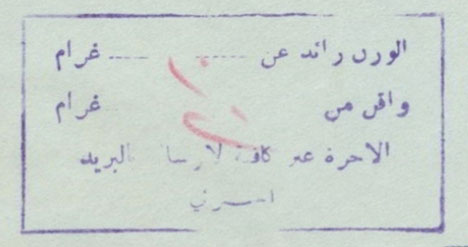 الوزن زائد عن ١٠ غرام
واقل من غرام
الاجرة غير كافية لارسالها بالبريد